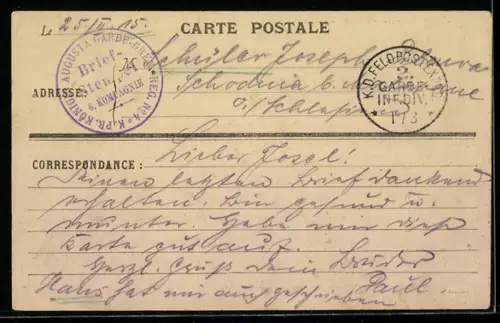 L 25/II. 15.
CARTE POSTALE
KÖNIGIN AUGUSTA GARDE-GREN. REG. No 4 * K. PR.
Brief-
Stempel
6. KOMPAGNIE
K.D. FELDPOSTEXP.
2
GARDE
INF. DIV.
* 1/3 *
Schüler Joseph
ADRESSE: Schodnia b.
o/ Schlesien
CORRESPONDANCE : Lieber Josel!
Deinen letzten Brief dankend
erhalten. Bin gesund u.
munter. Hebe mir diese
Karte gut auf.
Herzl. Gruß Dein Bruder
Hans hat mir auch geschrieben Paul.